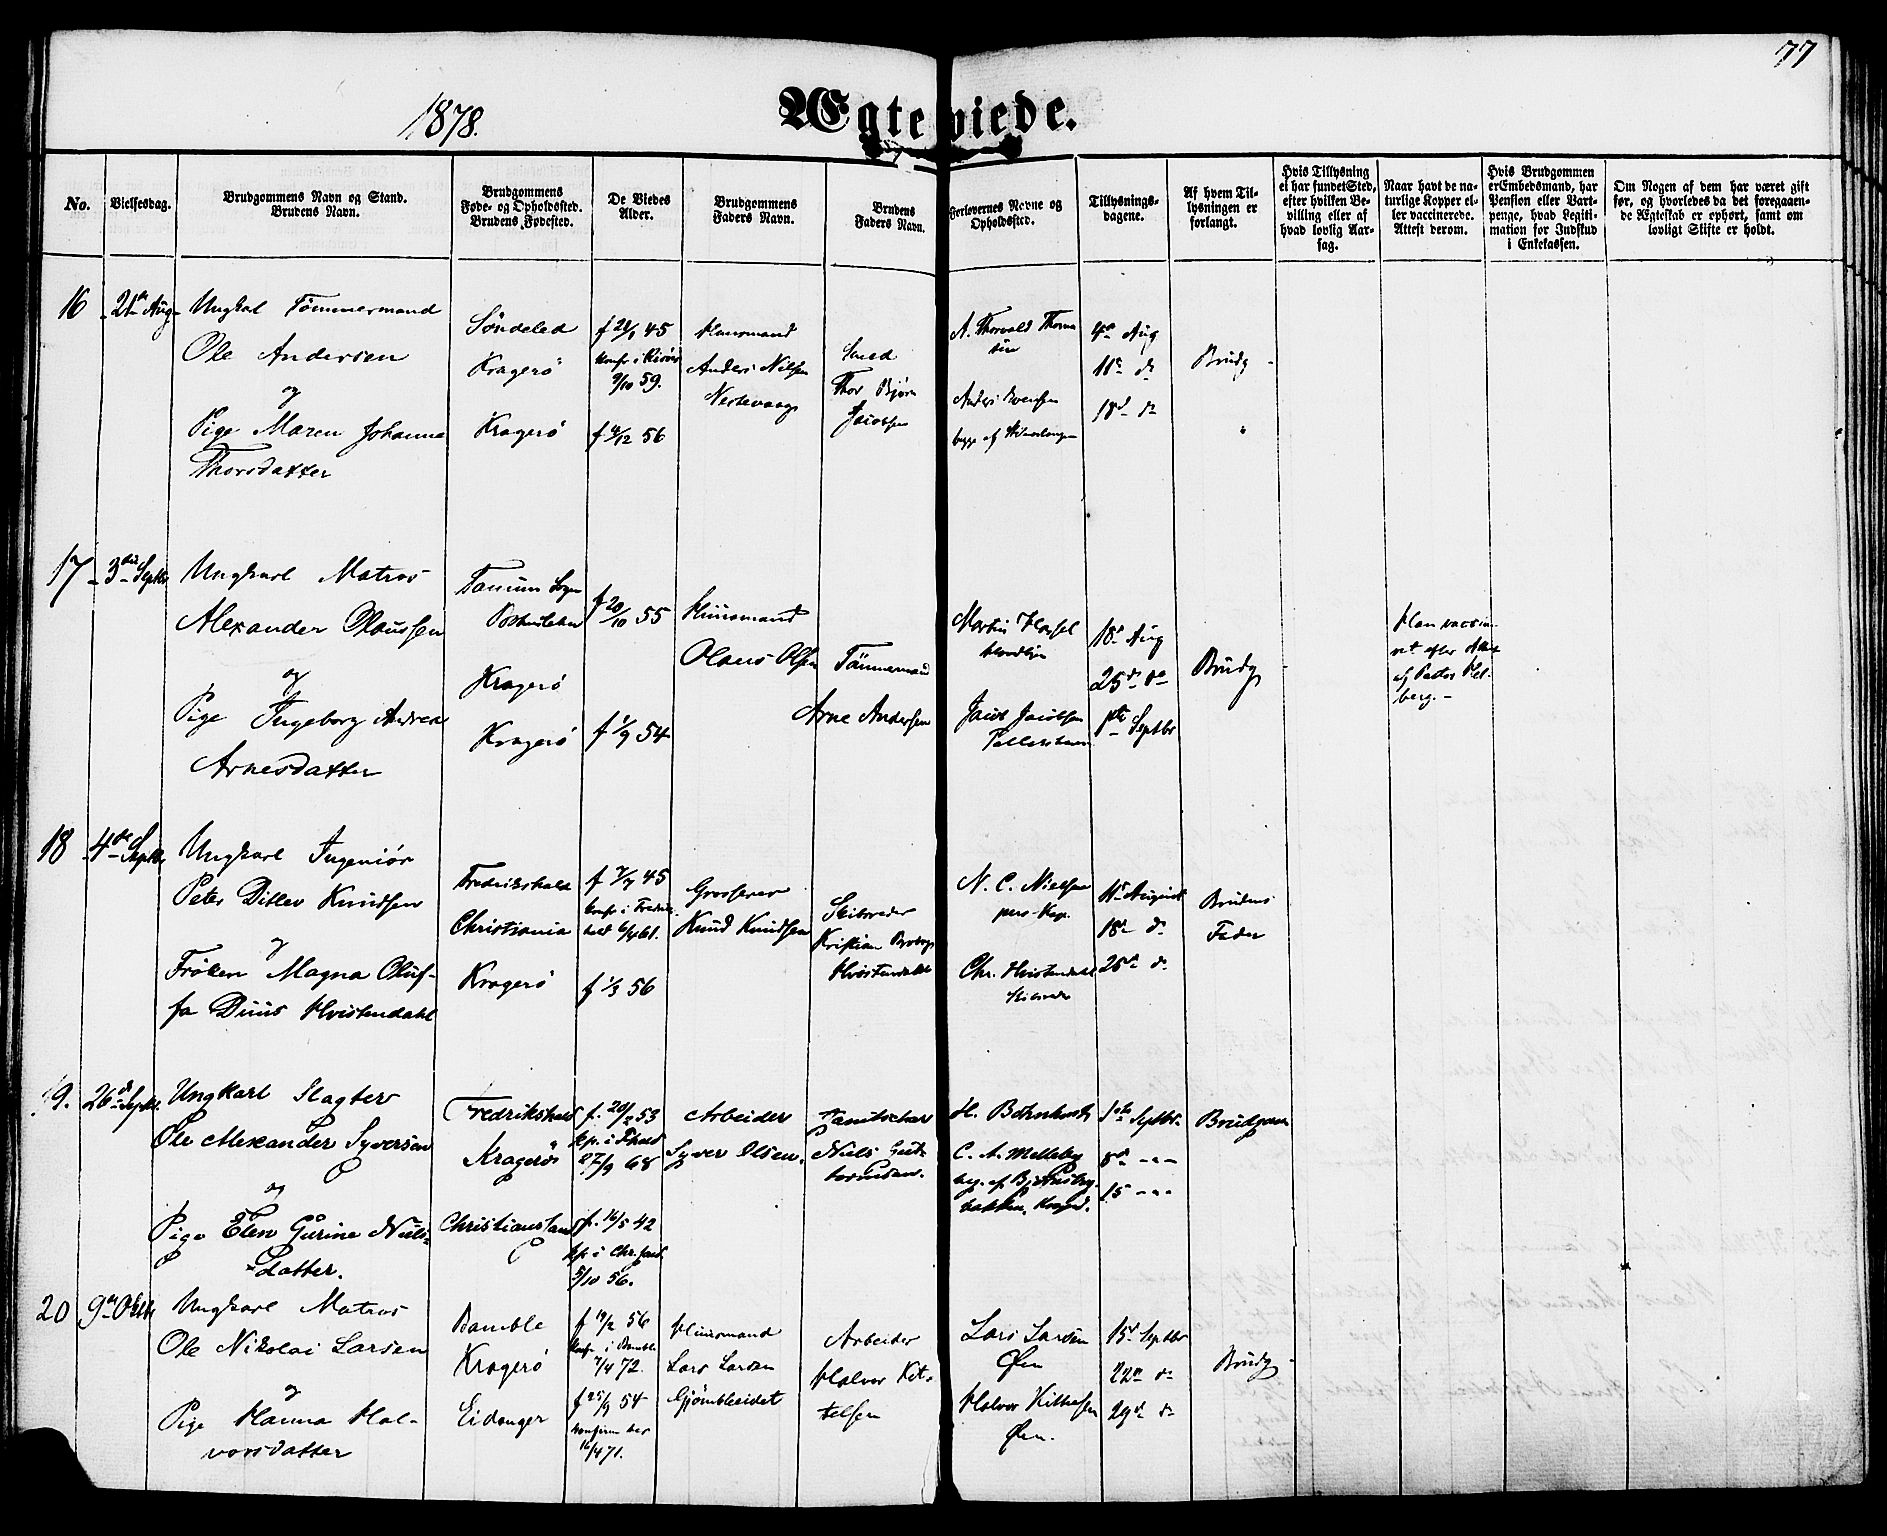 77
1878.
Ægteviede.
No.
Vielsesdag.
Brudgommens Navn og Stand.
Brudens Navn.
Brudgommens
Føde- og Opholdssted.
Brudens Fødested.
De Viedes
Alder.
Brudgommens
Faders Navn.
Brudens
Faders Navn.
Forlovernes Nevne og
Opholdssted.
Tillysnings-
dagene.
Af hvem Til-
lysningen er
forlangt.
Hvis Tillysning
ei har fundet Sted,
efter hvilken Be-
villing eller af
hvad lovlig Aar-
sag.
Naar havt de na-
turlige Kopper el-
ler vaccinerede.
Attest derom.
Hvis Brudgommen
er Embedsmand, har
Pension eller Vart-
penge, hvad Legiti-
mation for Indskud
i Enkekassen.
Om Nogen af dem har været gift
før, og hvorledes da det foregaaen-
de Ægteskab er ophørt, samt om
lovligt Skifte er holdt.
16
21de Aug
Ungkal Tømmermand
Ole Andersen
og
Pige Maren Johanna
Thorsdatter
Søndeled
Kragerø
Kragerø
f 21/1 45
Konf i Risør
9/10 59.
f 4/12 56
Huusmand
Anders Nilsen
Smed
Thor Bjørn
Jacobsen
A. Thorvald Thom
sen
Anders Svensen
begge af
4de Aug
11te do
18de do
Brudg
17
3die Septbr
Ungkarl Matros
Alexander Olaussen
og
Pige Ingeborg Andrea
Arnesdatter
Tanum Sogn
Kragerø
Kragerø
f 20/10 55
f 1/9 54
Huusmand
Olaus Olsen
Tømmermand
Arne Andersen
Martin Hassel
Jacob Jacobsen
18de Aug
25de do
1ste Septbr
Brudg
Han vaccin-
ret efter Attest
af Pastor Hel-
berg.-
18
4de Septbr
Ungkarl Ingeniør
Peter Ditlev Knudsen
og
Frøken Magna Oluf-
fa Duus Hvistendahl
Fredrikshald
Christiania
Kragerø
f 7/7 45
konf i Fredriks-
hald 6/4 61.
f 1/3 56
Grosserer
Knud Knudsen
Skibsreder
Kristian
Hvistendahl
N. C. Nielsen
pers-Kap.
Chr. Hvistendahl
Skibsreder
11te August
18de do
25de do
Brudens
Fader
19.
26de Septbr.
Ungkarl Slagter
Ole Alexander Syversen
og
Pige Elen Gurine Niels-
datter.
Fredrikshald
Kragerø
Christianssand
f. 20/2 53
kf. i Fhald
27/9 68
f. 16/5 42
kf. i Chr.sand
5/10 56.
Arbeider
Syver Olsen.
Niels Gut-
tormsen.
H. Bornholdt
C. A. Melleby
beg. af Bjørnsbg.
bakken, Kragerø.
1ste Septbr.
8de - - -
15 - - -
Brudgom
20
9de Oktbr
Ungkarl Matros
Ole Nikolai Larsen
og
Pige Hanna Hal-
vorsdatter
Bamble
Kragerø
Eidanger
f 19/2 56
konf i Bamble
7/4 72.
f 25/9 54
konfirm her
16/4 71.
Huusmand
Lars Larsen
Gjømbleeidet
Arbeider
Halvor Kit-
telsen
Lars Larsen
Øen
Halvor Kittelsen
Øen.
15de Septbr
22de do
29de do
Brudg